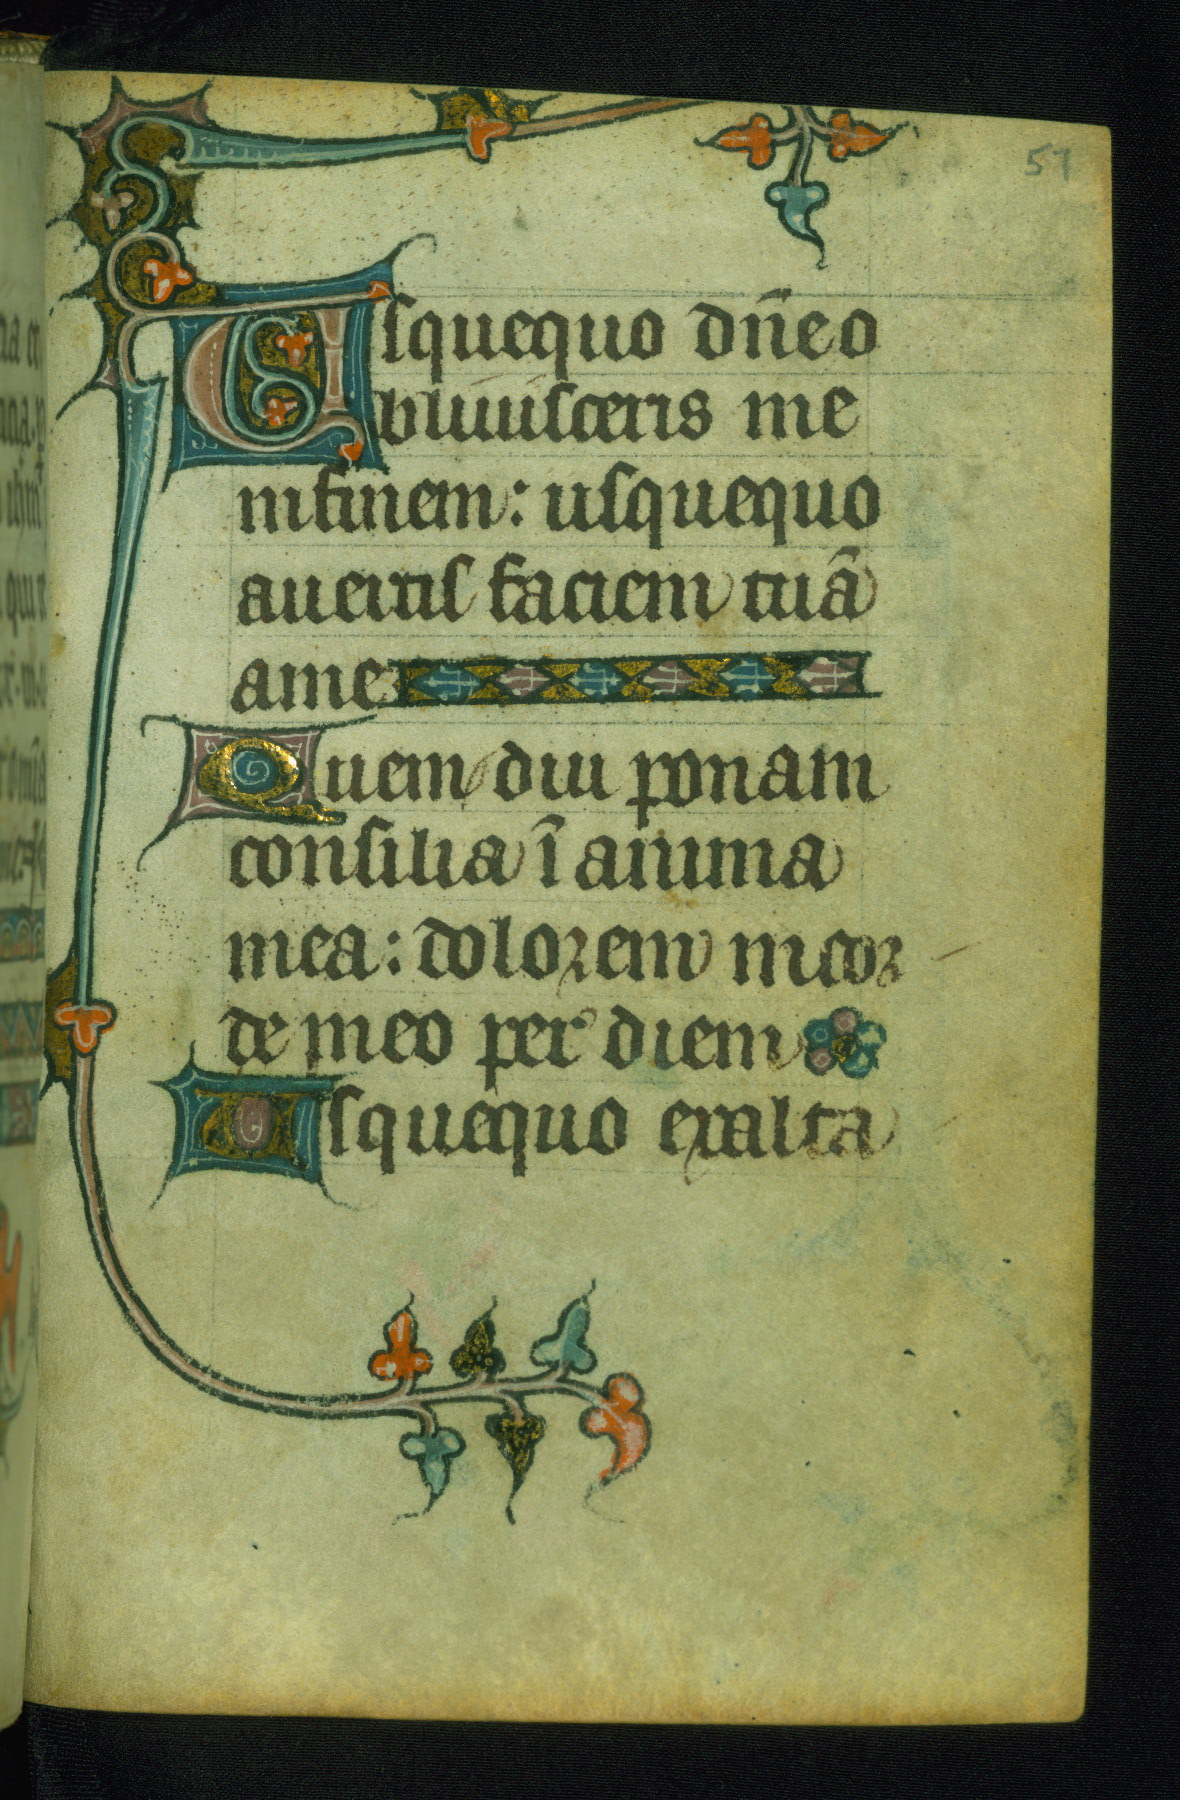 57
Usquequo dñe o
bliuisceris me
in finem: usquequo
avertis faciem tuã
a me
Quem diu ponam
consilia ĩ anima
mea: dolorem in cor
de meo per diem
Usquequo exalta